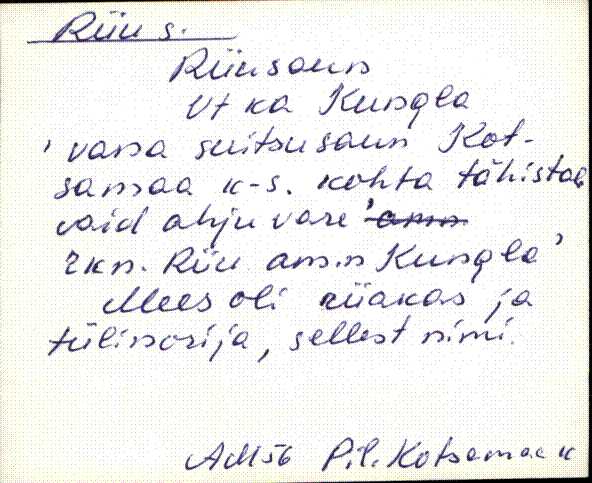 Rüü s.
Rüüsaun
Vt ka Kungla
'vana suitsusaun Kot-
samaa k-s. kohta tähistab
vaid ahju vare'
rkn. Rüü am.n Kungla'
Mees oli riiakas ja
tülinorija, sellest nimi.
AM56 Pil. Kotsamaa k